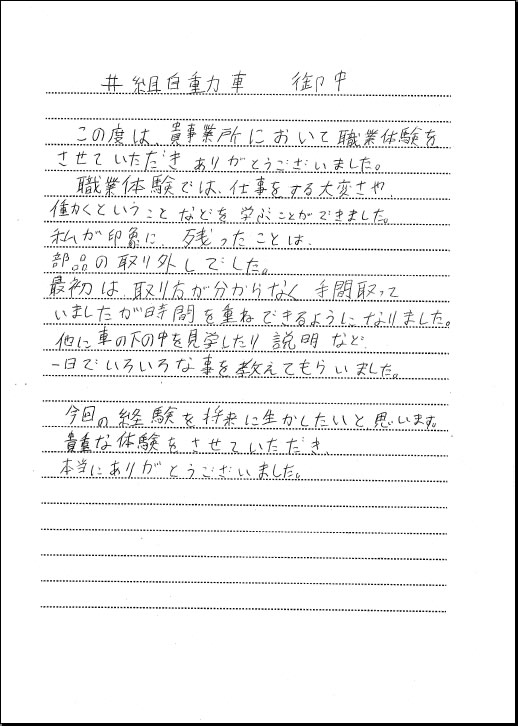 井組自動車 御中
この度は、貴事業所において職業体験を
させていただき ありがとうございました。
職業体験では、仕事をする大変さや、
働くということ などを 学ぶことができました。
私が印象に、残ったことは、
部品の取り外しでした。
最初は、取り方が分からなく 手間取って
いましたが時間を重ねできるようになりました。
他に車の下の中を見学したり 説明など、
一日でいろいろな事を教えてもらいました。
今回の経験を将来に生かしたいと思います。
貴重な体験をさせていただき、
本当にありがとうございました。